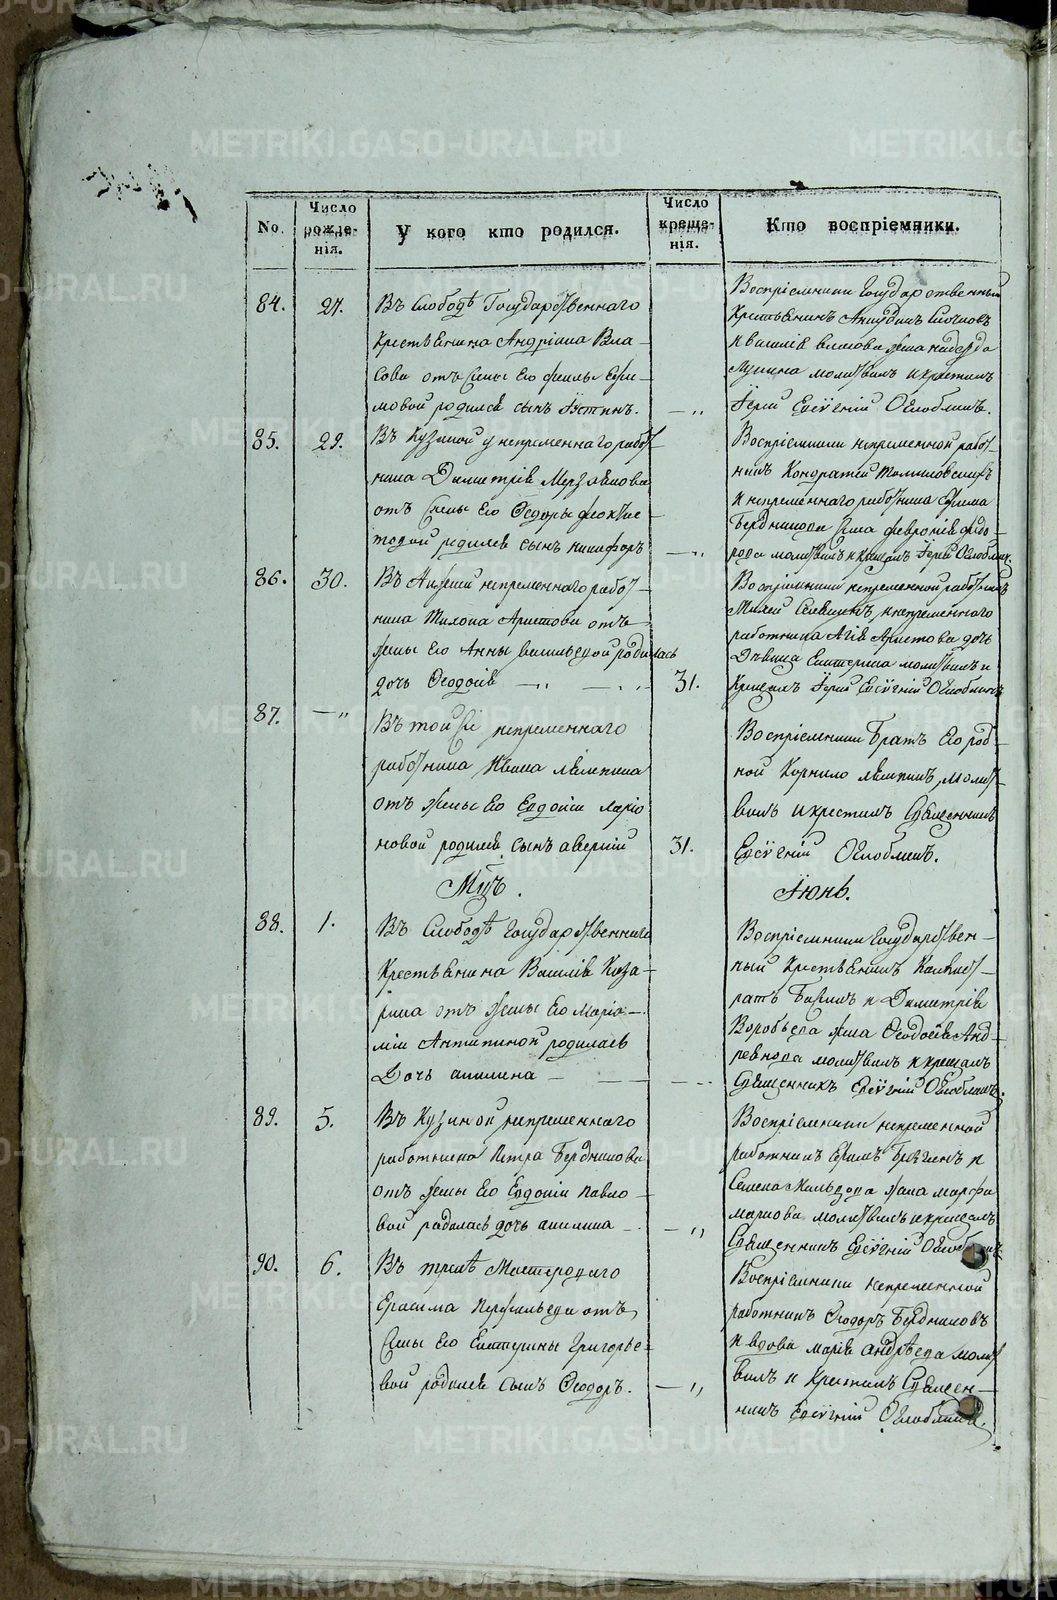 No.
Число рожде-
нія.
У кого кто родился.
Число креще-
нія.
Кто воспріемники.
84.
27.
Въ Слободѣ Государственнаго
крестьянина Андріана Вла-
сова отъ жены его
мовой родился сынъ Іустинъ.
— „
Воспріемники Государственный
Крестьянинъ
и Василія Власова жена надежда
молитвилъ и крестилъ
Іерей Евѳѵгній Оглоблинъ.
85.
29.
Въ Кузиной у непременнаго работ-
ника Димитрія Мерзлякова
отъ жены его Ѳедоры феокти-
стовой родился сынъ никифоръ
— „
Воспріемники непременной работ-
никъ Кондратей
и непременнаго работника Ефима
Бердникова жена февронія федо-
рова молитвилъ и крещалъ Іерей Оглоблин.
86.
30.
Въ непременнаго работ-
ника Тихона Аристова отъ
жены его Анны васильевой родилась
дочь Ѳеодосія — „ — „
31.
Воспріемники непременной работникъ
Михей и непременнаго
работника Агія Аристова дочь
Дѣвица Екатерина молитвилъ и
Крещалъ Іерей Евѳѵгній Оглоблинъ
87.
— „
Въ той же непременнаго
работника Ивана лямпина
отъ жены его Евдокіи ларіо
новой родился сынъ аверкій
31.
Воспріемники Братъ его род-
ной Корнило лямпинъ, молит-
вилъ и крестилъ Священникъ
Евѳѵгній Оглоблинъ.
Мцъ.
Іюнь.
88.
1.
Въ Слободѣ Государственнаго
Крестьянина Василія Каза-
рина отъ жены его Маріа-
міи Антипиной родилась
Дочь акилина —
— — —
Воспріемники Государствен-
ный Крестьянинъ Калист-
ратъ и Димитрія
Воробьева жена Ѳеодосія Анд-
реянова молитвилъ и крещалъ
Священникъ Евѳѵгній Оглоблинъ.
89.
5.
Въ Кузиной непременнаго
работника Петра Бердникова
отъ жены его Евдокіи павло-
вой родилась дочь акилина —
— „
Воспріемники непременной
работникъ и
Семена жена марфа
маркова молитвилъ и крещалъ
Священникъ Евѳѵгній Оглоблинъ
90.
6.
Въ трекѣ Мастероваго
Ерасима Перфильева отъ
жены его Екатерины Григорье-
вой родился сынъ Ѳеодоръ.
— „
Воспріемники непременной
работникъ Ѳеодоръ Бердниковъ
и вдова марія андрѣева молит
вилъ и Крестилъ Священ-
никъ Евѳѵгній Оглоблинъ.
METRIKI.GASO-URAL.RU